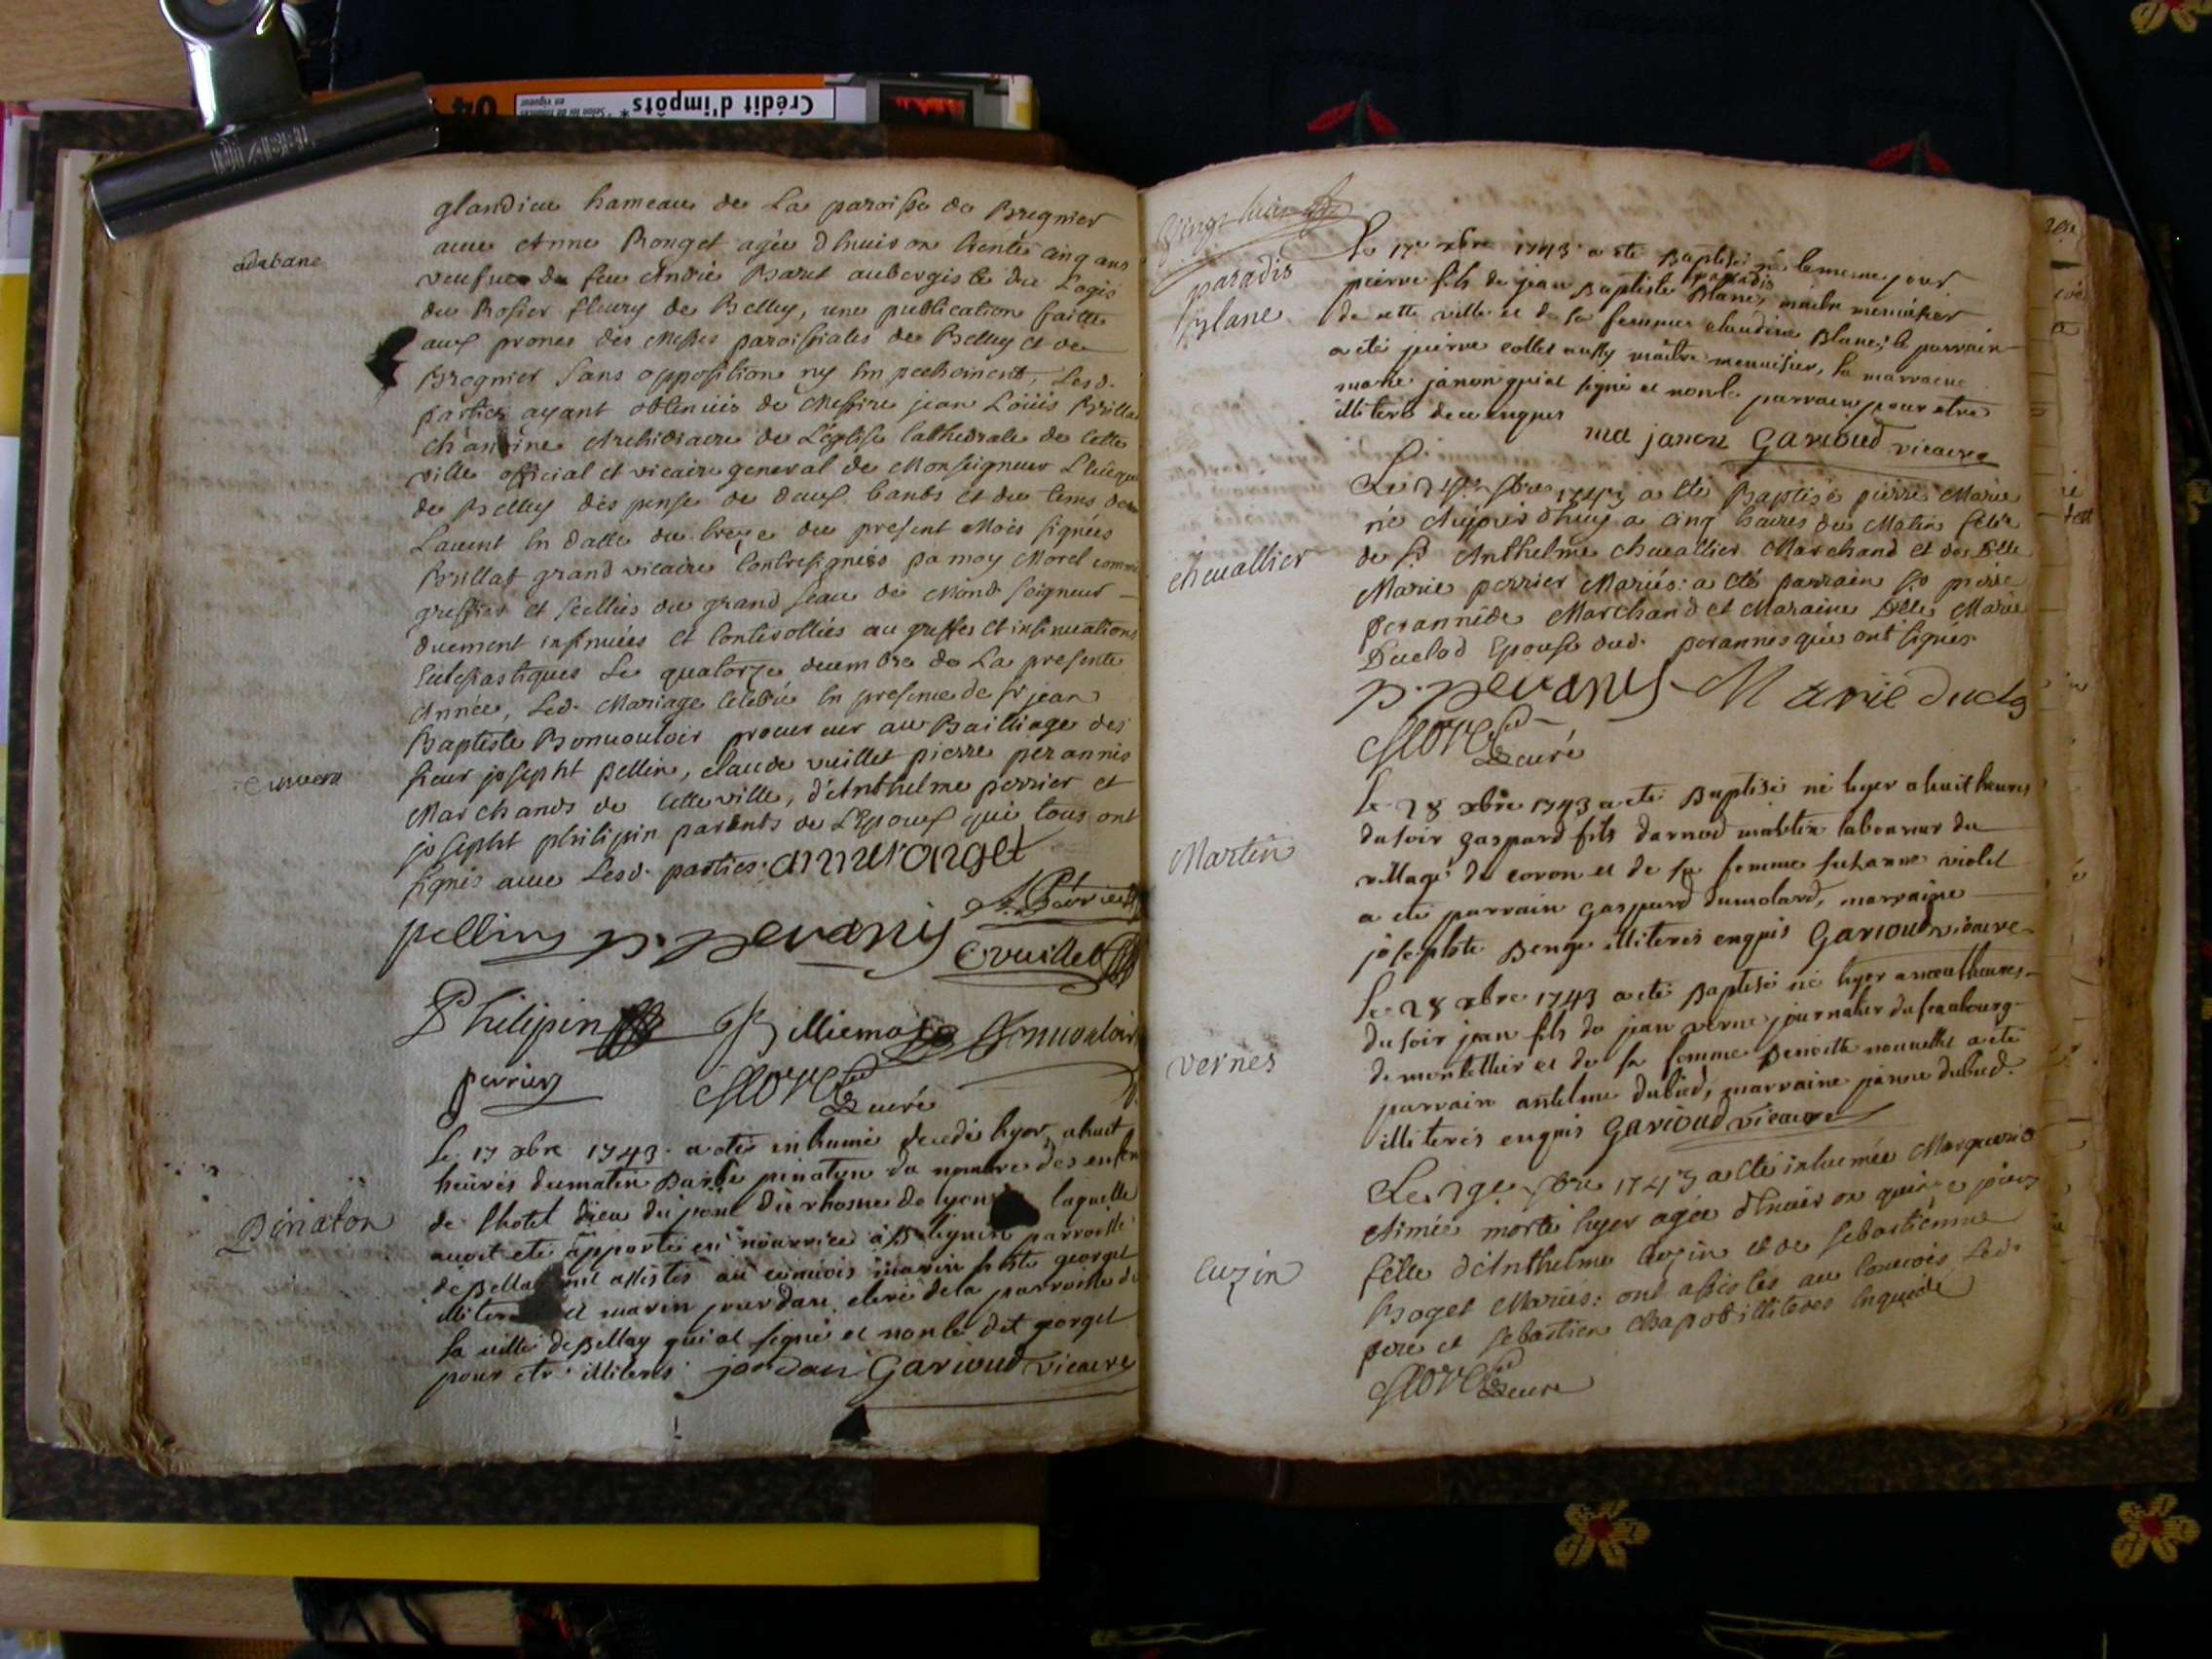 Crédit d'impôts*
04
glandieu hameau de La paroisse de Bregnier
avec Anne Rouget agée d'environ trente cinq ans
veufue de feu André Baret aubergiste du Logis
du Rosier fleury de Belley, une publication faitte
aux prones des Messes paroissiales de Belley et de
Bregnier sans opposition ny Empechement, Lesd.
parties ayant obtenües de Messire jean Loüis Brillat
chanoine Archidiacre de L'église Cathedrale de Cette
ville official et vicaire general de Monseigneur L'Evêque
de Belley dispense de deux bants et du tems de
Lavent En datte du treze du present Mois signées
Brillat grand vicaire Contresignées pa moy Morel commis
greffier et scellées du grand seau de Mond. seigneur
duement insinuées et Controllées au greffes et insinuations
Eclesiastiques Le quatorze decembre de La presente
Année, Led. Mariage Celebré En presence de Sr jean
Baptiste Bonvouloir procureur au Bailliage des
sieur josepht pellin, claude vuillet pierre perannis
Marchands de Cette ville, d'Anthelme perrier et
josepht philipin parents de L'Epoux qui tous ont
signés avec Lesd. parties. anne roget
pellin p. peranis C vuillet
Philipin Billiemaz Bonvouloir
perrier Morel curé
Pinaton
Le 17 xbre 1743 a eté inhumé decedé hyer a huit
heures du matin Barbe pinaton du nombre des enfen
de l'hotel dieu du pont du rhosne de lyon laquelle
avoit eté apporté en nourrice a parroisse
de Bellay ont assistés au convois georget
et marin jourdan clerc de la parroisse de
la ville de Bellay qui at signé et non le dit georget
pour etre illiterés jordan Garioud vicaire
paradis
blanc
Le 17e xbre 1743 a eté Baptisé né le meme jour
paradis
pierre fils de jean Baptiste Blanc, maitre menuisier
de cette ville et de sa femme claudine Blanc; le parrain
a eté pierre collet aussy maitre menuisier, la marraine
marie janon qui at signé et non le parrain pour etre
illiteré de ce enquis
ma janon Garioud vicaire
chevallier
xbre 1743 a eté Baptisé pierre Marie
né Aujourd'huy a cinq heures du Matin fils
de Sr Anthelme chevallier Marchand et de Dlle
Marie perrier Mariés: a eté parrain Sr pierre
perannis Marchand et Maraine Dlle Marie
Duclod Epouse dud. perannes qui ont signés
p. peranis Marie duclo
Morel curé
Martin
Le 28 xbre 1743 a eté Baptisé né hyer a huit heures
du soir gaspard fils darnod martin laboureur du
village de coron et de sa femme suzanne violet
a eté parrain gaspard dumolard, marraine
josephte Benge illiterés enquis Garioud vicaire
vernes
Le 28 xbre 1743 a eté Baptisé né hyer a neuf heures
du soir jean fils de jean verne journalier du feaubourg
de montellier et de sa femme Benoite nouvellet a eté
parrain antelme dubied, marraine janne dubied
illiterés enquis Garioud vicaire
Cuzin
Le 29e xbre 1743 a eté inhumée Marguerite
Aimée morte hyer agée d'environ quinze jours
fille d'Anthelme Cuzin et de sebastienne
Roget Mariés: ont assistés au Convois Led.
pere et sebastien Chapot illiterés Enquis
Morel curé